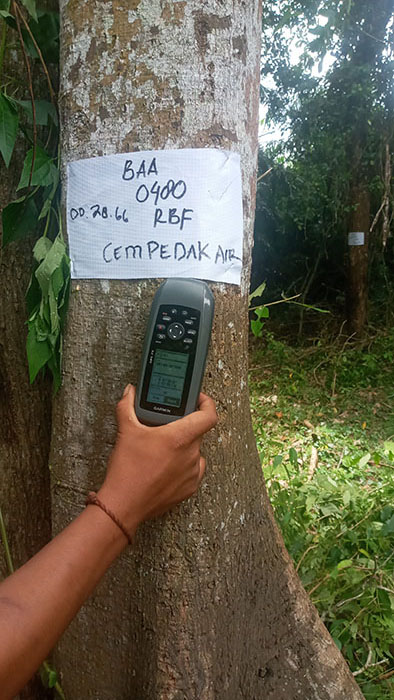 BAA
0480
DD.28.66 RBF
CEMPEDAK AIR
GARMIN